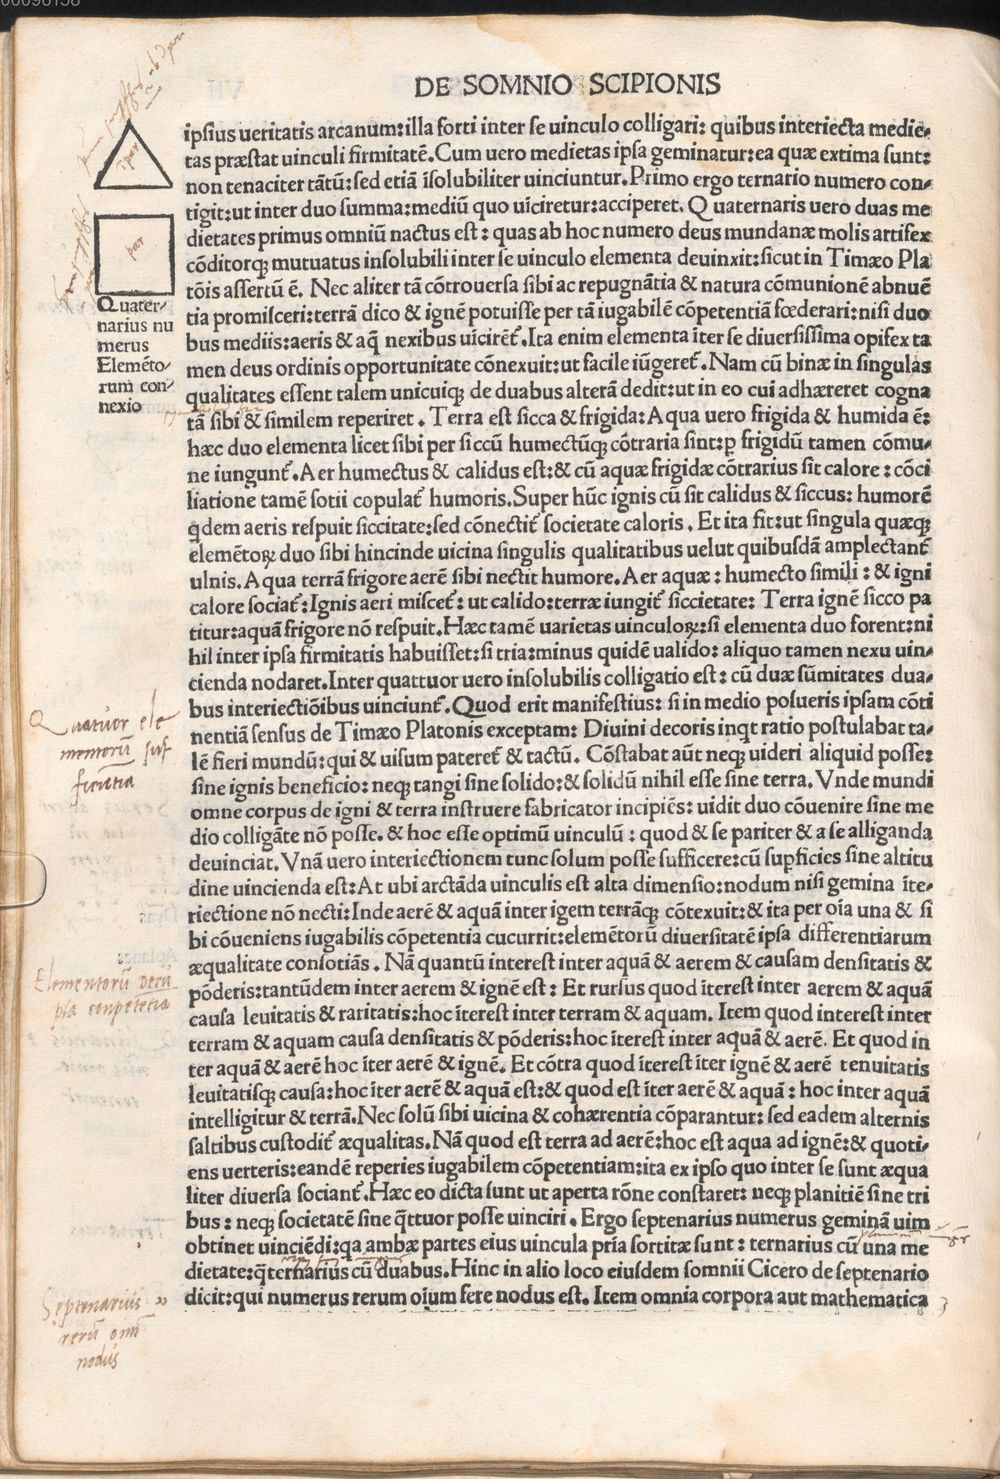 00096158
DE SOMNIO SCIPIONIS
ipsius ueritatis arcanum:illa forti inter se uinculo colligari: quibus interiecta medie-
tas præstat uinculi firmitatē.Cum uero medietas ipsa geminatur:ea quæ extima sunt:
non tenaciter tātū:sed etiā ĩsolubiliter uinciuntur.Primo ergo ternario numero con-
tigit:ut inter duo summa:mediū quo uĩciretur:acciperet. Quaternaris uero duas me
dietates primus omniū nactus est: quas ab hoc numero deus mundanæ molis artifex
cōditorq; mutuatus insolubili inter se uinculo elementa deuinxit:sicut in Timæo Pla
tōis assertū ē. Nec aliter tā cōtrouersa sibi ac repugnātia & natura cōmunionē abnuē
tia promisceri:terrā dico & ignē potuisse per tā iugabilē cōpetentiā fœderari:nisi duo
bus mediis:aeris & aq̄ nexibus uĩcirēt̃.Ita enim elementa ĩter se diuersissima opifex ta
men deus ordinis opportunitate cōnexuit:ut facile iūgeret̃.Nam cū binæ in singulas
qualitates essent talem unicuiq; de duabus alterā dedit:ut in eo cui adhæreret cogna
tā sibi & similem reperiret . Terra est sicca & frigida:Aqua uero frigida & humida ē:
hæc duo elementa licet sibi per siccū humectūq; cōtraria sint:p̱ frigidū tamen cōmu-
ne iungunt̃.Aer humectus & calidus est:& cū aquæ frigidæ cōtrarius sit calore : cōci
liatione tamē sotii copulat̃ humoris.Super hūc ignis cū sit calidus & siccus: humorē
q̇dem aeris respuit siccitate:sed cōnectit̃ societate caloris . Et ita fit:ut singula quæq;
elemētoꝝ duo sibi hincinde uicina singulis qualitatibus uelut quibusdā amplectant̃
ulnis.Aqua terrā frigore aerē sibi nectit humore.Aer aquæ : humecto simili : & igni
calore sociat̃:Ignis aeri miscet̃: ut calido:terræ iungit̃ siccietate: Terra ignē sicco pa
titur:aquā frigore nō respuit.Hæc tamē uarietas uinculoꝝ:si elementa duo forent:ni
hil inter ipsa firmitatis habuisset:si tria:minus quidē ualido: aliquo tamen nexu uin-
cienda nodaret.Inter quattuor uero insolubilis colligatio est : cū duæ sūmitates dua-
bus interiectiōibus uinciunt̃.Quod erit manifestius: si in medio posueris ipsam cōti
nentiā sensus de Timæo Platonis exceptam: Diuini decoris inqt ratio postulabat ta-
lē fieri mundū:qui & uisum pateret̃ & tactū. Cōstabat aūt neq; uideri aliquid posse:
sine ignis beneficio: neq; tangi sine solido:& solidū nihil esse sine terra. Vnde mundi
omne corpus de igni & terra instruere fabricator incipiēs: uidit duo cōuenire sine me
dio colligāte nō posse. & hoc esse optimū uinculū : quod & se pariter & a se alliganda
deuinciat. Vnā uero interiectionem tunc solum posse sufficere:cū sup̱ficies sine altitu
dine uincienda est:At ubi arctāda uinculis est alta dimensio:nodum nisi gemina ĩte-
riectione nō necti:Inde aerē & aquā inter igem terrāq; cōtexuit:& ita per oĩa una & si
bi cōueniens iugabilis cōpetentia cucurrit:elemētorū diuersitatē ipsa differentiarum
æqualitate consotiās . Nā quantū interest inter aquā & aerem & causam densitatis &
pōderis:tantūdem inter aerem & ignē est : Et rursus quod ĩterest inter aerem & aquā
causa leuitatis & raritatis:hoc ĩterest inter terram & aquam. Item quod interest inter
terram & aquam causa densitatis & pōderis:hoc ĩterest inter aquā & aerē. Et quod in
ter aquā & aerē hoc ĩter aerē & ignē. Et cōtra quod ĩterest ĩter ignē & aerē tenuitatis
leuitatisq; causa:hoc ĩter aerē & aquā est:& quod est ĩter aerē & aquā : hoc inter aquā
intelligitur & terrā.Nec solū sibi uicina & cohærentia cōparantur: sed eadem alternis
saltibus custodit̃ æqualitas.Nā quod est terra ad aerē:hoc est aqua ad ignē:& quoti-
ens uerteris:eandē reperies iugabilem cōpetentiam:ita ex ipso quo inter se sunt æqua
liter diuersa sociant̃.Hæc eo dicta sunt ut aperta rōne constaret: neq; planitiē sine tri
bus : neq; societatē sine q̄ttuor posse uinciri . Ergo septenarius numerus geminā uim
obtinet uinciēdi:qa ambæ partes eius uincula pria sortitæ sunt : ternarius cū una me
dietate:q̄ternarius cū duabus.Hinc in alio loco eiusdem somnii Cicero de septenario
dicit:qui numerus rerum oĩum fere nodus est. Item omnia corpora aut mathematica
par
Quater-
narius nu
merus
Elemēto-
rum con-
nexio
Quatuor ele
mentorū suf
ficiētia
Elementorū Decu
pla conpetētia
Septenarius
rerū oīm
nodus